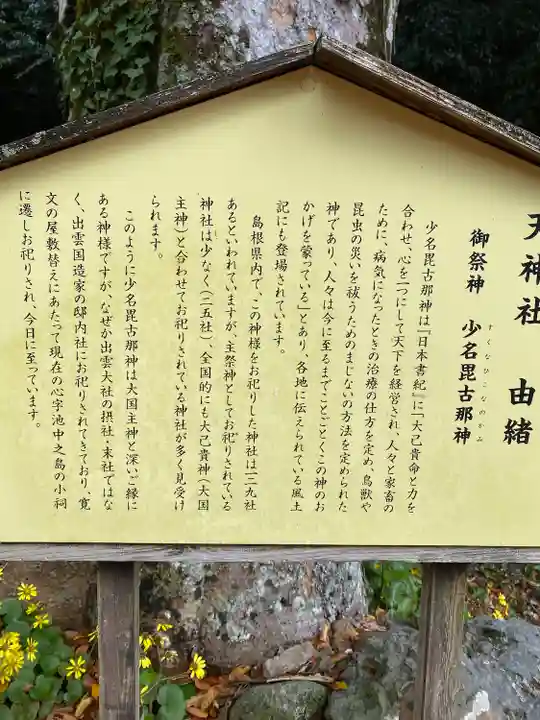 天神社 由緒
御祭神 少名毘古那神
すくなひこなのかみ
少名毘古那神は『日本書紀』に「大己貴命と力を
合わせ、心を一つにして天下を経営され、人々と家畜の
ために、病気になったときの治療の仕方を定め、鳥獣や
昆虫の災いを祓うためのまじないの方法を定められた
神であり、人々は今に至るまでことごとくこの神のお
かげを蒙っている」とあり、各地に伝えられている風土
記にも登場されています。
島根県内で、この神様をお祀りした神社は一三九社
あるといわれていますが、主祭神としてお祀りされている
神社は少なく(二五社)、全国的にも大己貴神(大国
主神)と合わせてお祀りされている神社が多く見受け
られます。
このように少名毘古那神は大国主神と深いご縁に
ある神様ですが、なぜか出雲大社の摂社・末社ではな
く、出雲国造家の邸内社にお祀りされてきており、寛
文の屋敷替えにあたって現在の心字池中之島の小祠
に遷しお祀りされ、今日に至っています。